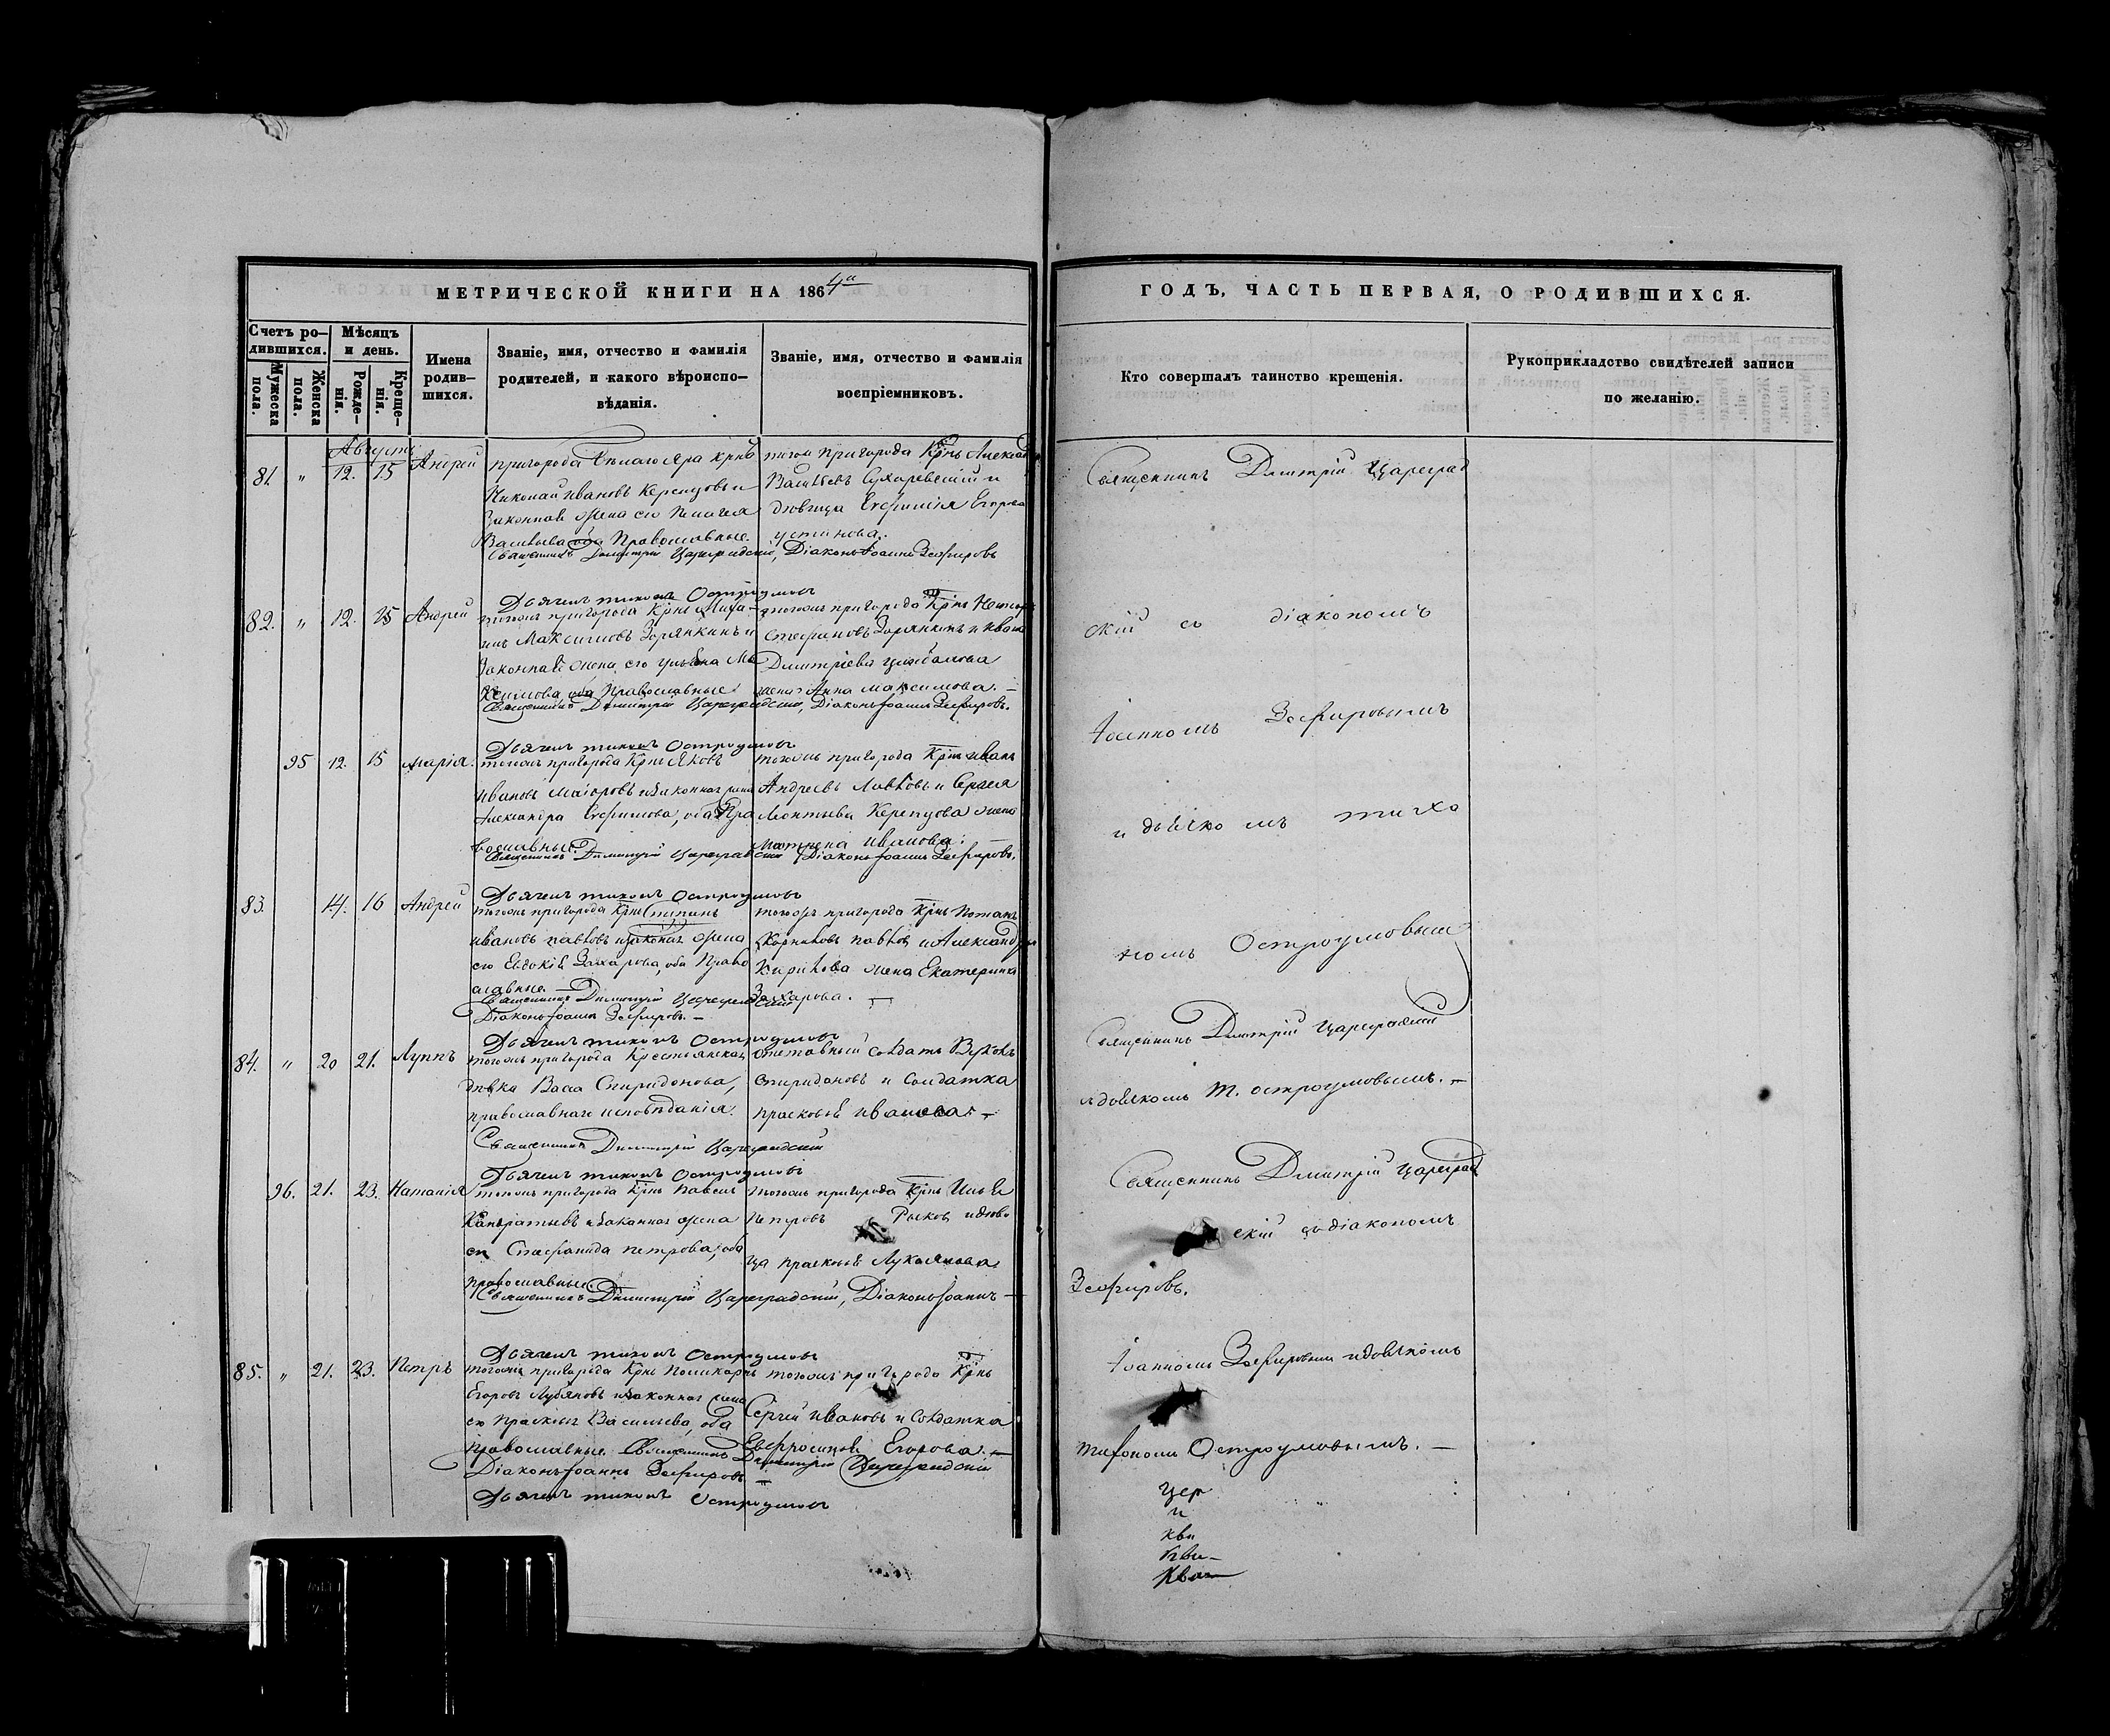 МЕТРИЧЕСКОЙ КНИГИ НА 1864й
Счетъ ро-
дившихся.
Мужеска
пола.
Женска
пола.
Мѣсяцъ
и день.
Рожде-
нія.
Креще-
нія.
Имена
родив-
шихся.
Званіе, имя, отчество и фамилія
родителей, и какого вѣроиспо-
вѣданія.
Званіе, имя, отчество и фамилія
воспріемниковъ.
Августъ
81. " 12. 15 Андрей
пригорода Бѣлаго Яра крнъ
Николай Ивановъ и
Законная жена его Пелагея
оба Православные.
того пригорода Крнъ
Васильевъ Сухаревскій и
дѣвица Евфимія Егорова
Устинова.
Священникъ Димитрій Цареградскій, Діаконъ Іоаннъ Зефировъ
Дьячекъ Тихонъ Остроумовъ
82. " 12. 15 Андрей
тогожъ пригорода Крнъ Миха-
илъ Максимовъ Зорянкинъ и
Законная жена его Ульяна Ма
ксимова, оба Православные
тогожъ пригорода Крнъ
Стефановъ Зорянкинъ и Ивана
Дмитріева
жена Анна Максимова. —
Священникъ Димитрій Цареградскій, Діаконъ Іоаннъ Зефировъ.
Дьячекъ Тихонъ Остроумовъ
95 12. 15 Марія.
тогожъ пригорода Крнъ Яковъ
Ивановъ Маіоровъ и Законная жена
Александра Евфимова, оба Пра
вославные.
тогожъ пригорода Крнъ Иванъ
Андреевъ и Сергея
Леонтьева жена
Матрена Иванова. —
Священникъ Димитрій Цареградскій Діаконъ Іоаннъ Зефировъ.
Дьячекъ Тихонъ Остроумовъ
83. 14. 16 Андрей
тогожъ пригорода Крнъ Степанъ
Ивановъ Павловъ и Законная жена
его Евдокія Захарова, оба Право
славные. —
тогожъ пригорода Крнъ
Павловъ и Александра
Кирилова жена Екатерина
Захарова. —
Священникъ Димитрій Цареградскій
Діаконъ Іоаннъ Зефировъ. —
Дьячекъ Тихонъ Остроумовъ
84. " 20 21. Луппъ
тогожъ пригорода Крестьянская
дѣвка Васса Спиридонова,
православнаго исповѣданія.
отставный солдатъ
Спиридоновъ и Солдатка
Прасковья Иванова. —
Священникъ Димитрій Цареградскій
Дьячекъ Тихонъ Остроумовъ
96. 21. 23. Наталія
тогожъ пригорода Крнъ Павелъ
Кондратьевъ и Законная жена
его Стефанида Петрова, оба
православные.
тогожъ пригорода Крнъ Илья
Петровъ Рыковъ и дѣви
ца Прасковья Лукьянова
Священникъ Димитрій Цареградскій, Діаконъ Іоаннъ —
Дьячекъ Тихонъ Остроумовъ
85. " 21. 23. Петръ
тогожъ пригорода Крнъ Поликарпъ
Егоровъ Лубяновъ и Законная жена
его Прасковья Васильева, оба
православные.
тогожъ пригорода Крнъ
Сергей Ивановъ и Солдатка
Евфросинья Егорова. —
Священникъ Димитрій Цареградскій
Діаконъ Іоаннъ Зефировъ —
Дьячекъ Тихонъ Остроумовъ
ГОДЪ, ЧАСТЬ ПЕРВАЯ, О РОДИВШИХСЯ.
Кто совершалъ таинство крещенія.
Рукоприкладство свидѣтелей записи
по желанію.
Священникъ Дмитрій Цареград
скій со діакономъ
Іоанномъ Зефировымъ
и дьячкомъ Тихо
номъ Остроумовымъ
Священникъ Дмитрій Цареградскій
съ дьячкомъ Т. Остроумовымъ. —
Священникъ Дмитрій Цареград
скій со діакономъ
Зефировъ.
Іоанномъ Зефировымъ и дьячкомъ
Тихономъ Остроумовымъ. —
Цер
и
кви
кви—
Ква—